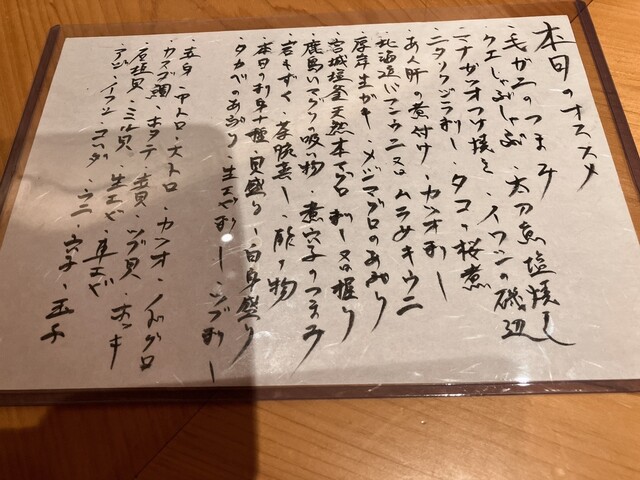 本日のオススメ
・毛ガニのつまみ
・クエしゃぶしゃぶ ・太刀魚塩焼し
・マナガツオつけ焼き ・イワシの磯辺
・ニタリクジラ刺し ・タコの桜煮
・あん肝の煮付け ・カツオ刺し
・北海道バフンウニ又はムラサキウニ
・厚岸生がき ・メジマグロのあぶり
・宮城塩釜天然本マグロ 刺し又は握り
・鹿島ハマグリの吸い物 ・煮穴子のつまみ
・岩もずく ・茶碗蒸し ・酢の物
・本日の刺身十種 ・貝盛り ・白身盛り
・タカベのあぶり ・生エビ刺し ・ツブ刺し
・白身 ・中トロ ・大トロ ・カツオ ・ノドグロ
・カスゴ鯛 ・ホタテ ・赤貝 ・ツブ貝 ・ホッキ
・石垣貝 ・ミル貝 ・生エビ ・車エビ
・アジ ・イワシ ・コハダ ・ウニ ・穴子 ・玉子